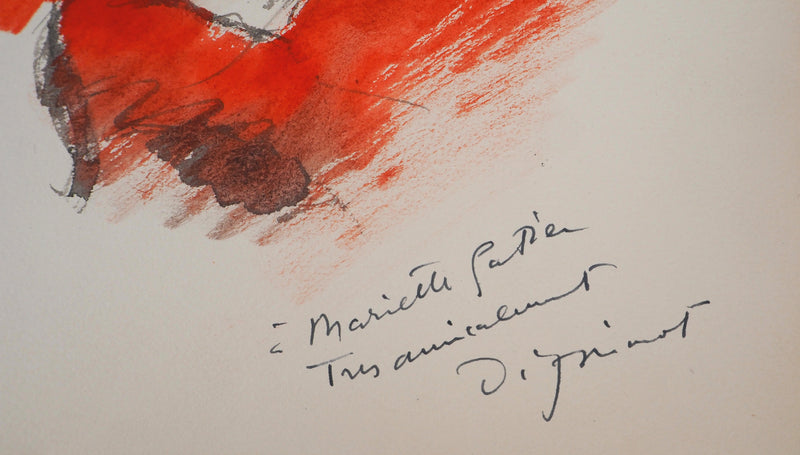 à Mariette Gatier
Tres amicalement
Dignimont